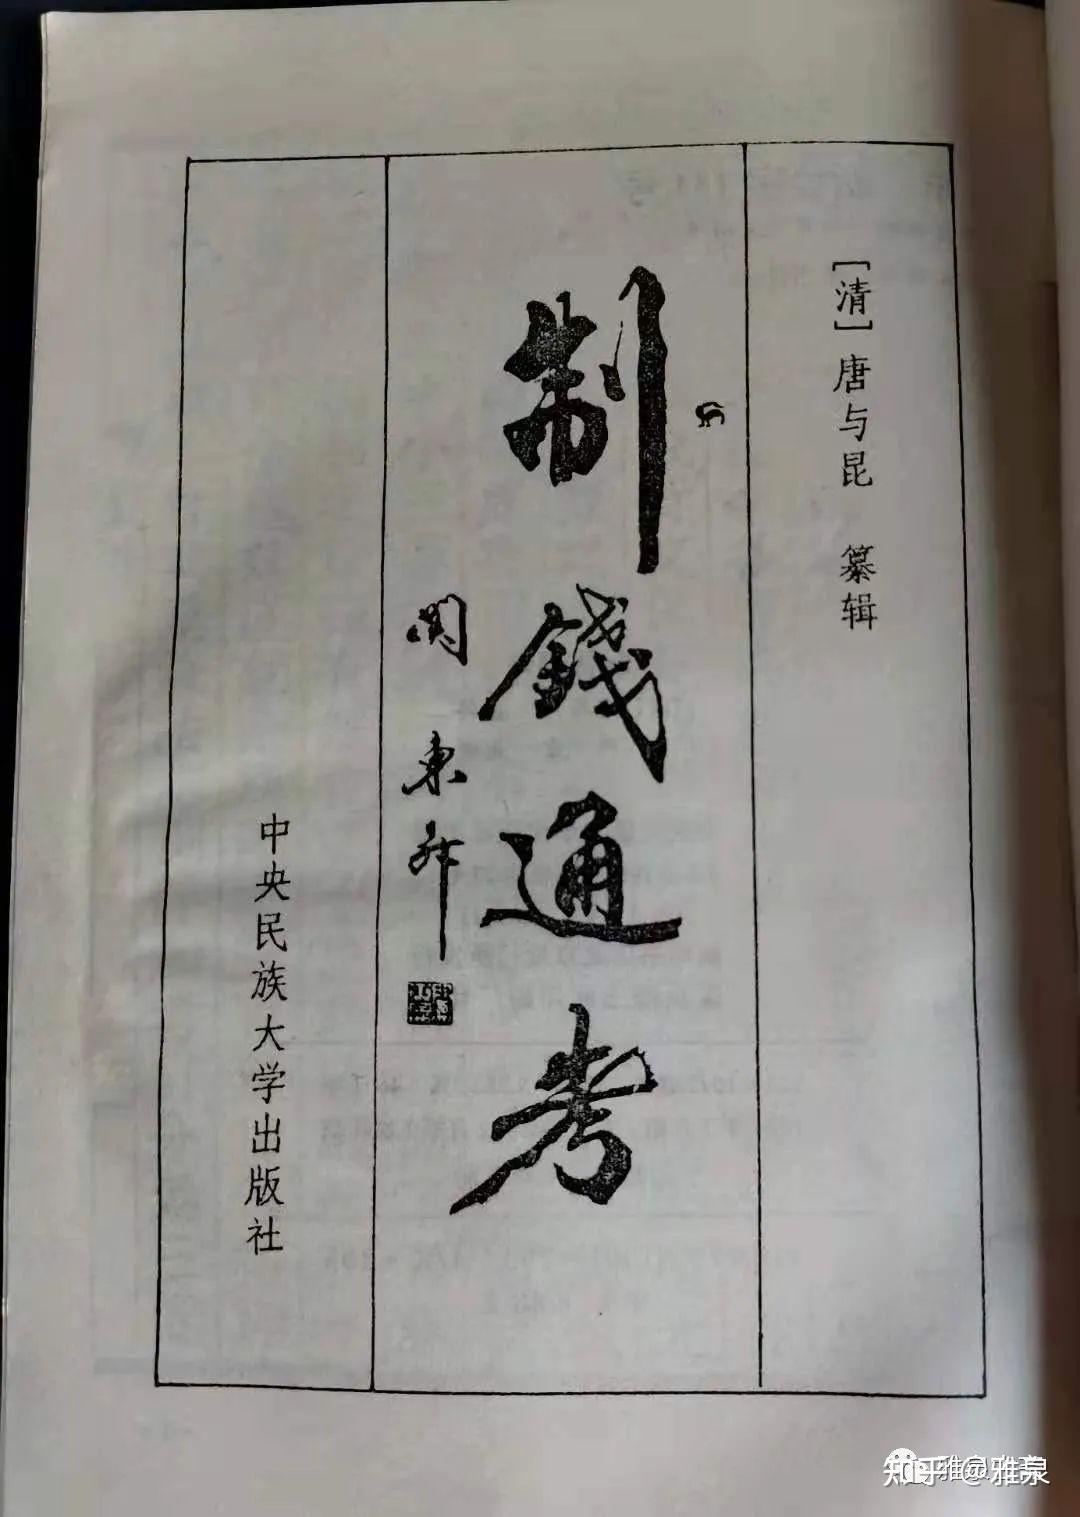 [清]唐与昆 纂辑
制錢通考
関東升
中央民族大学出版社
知乎 @雅泉